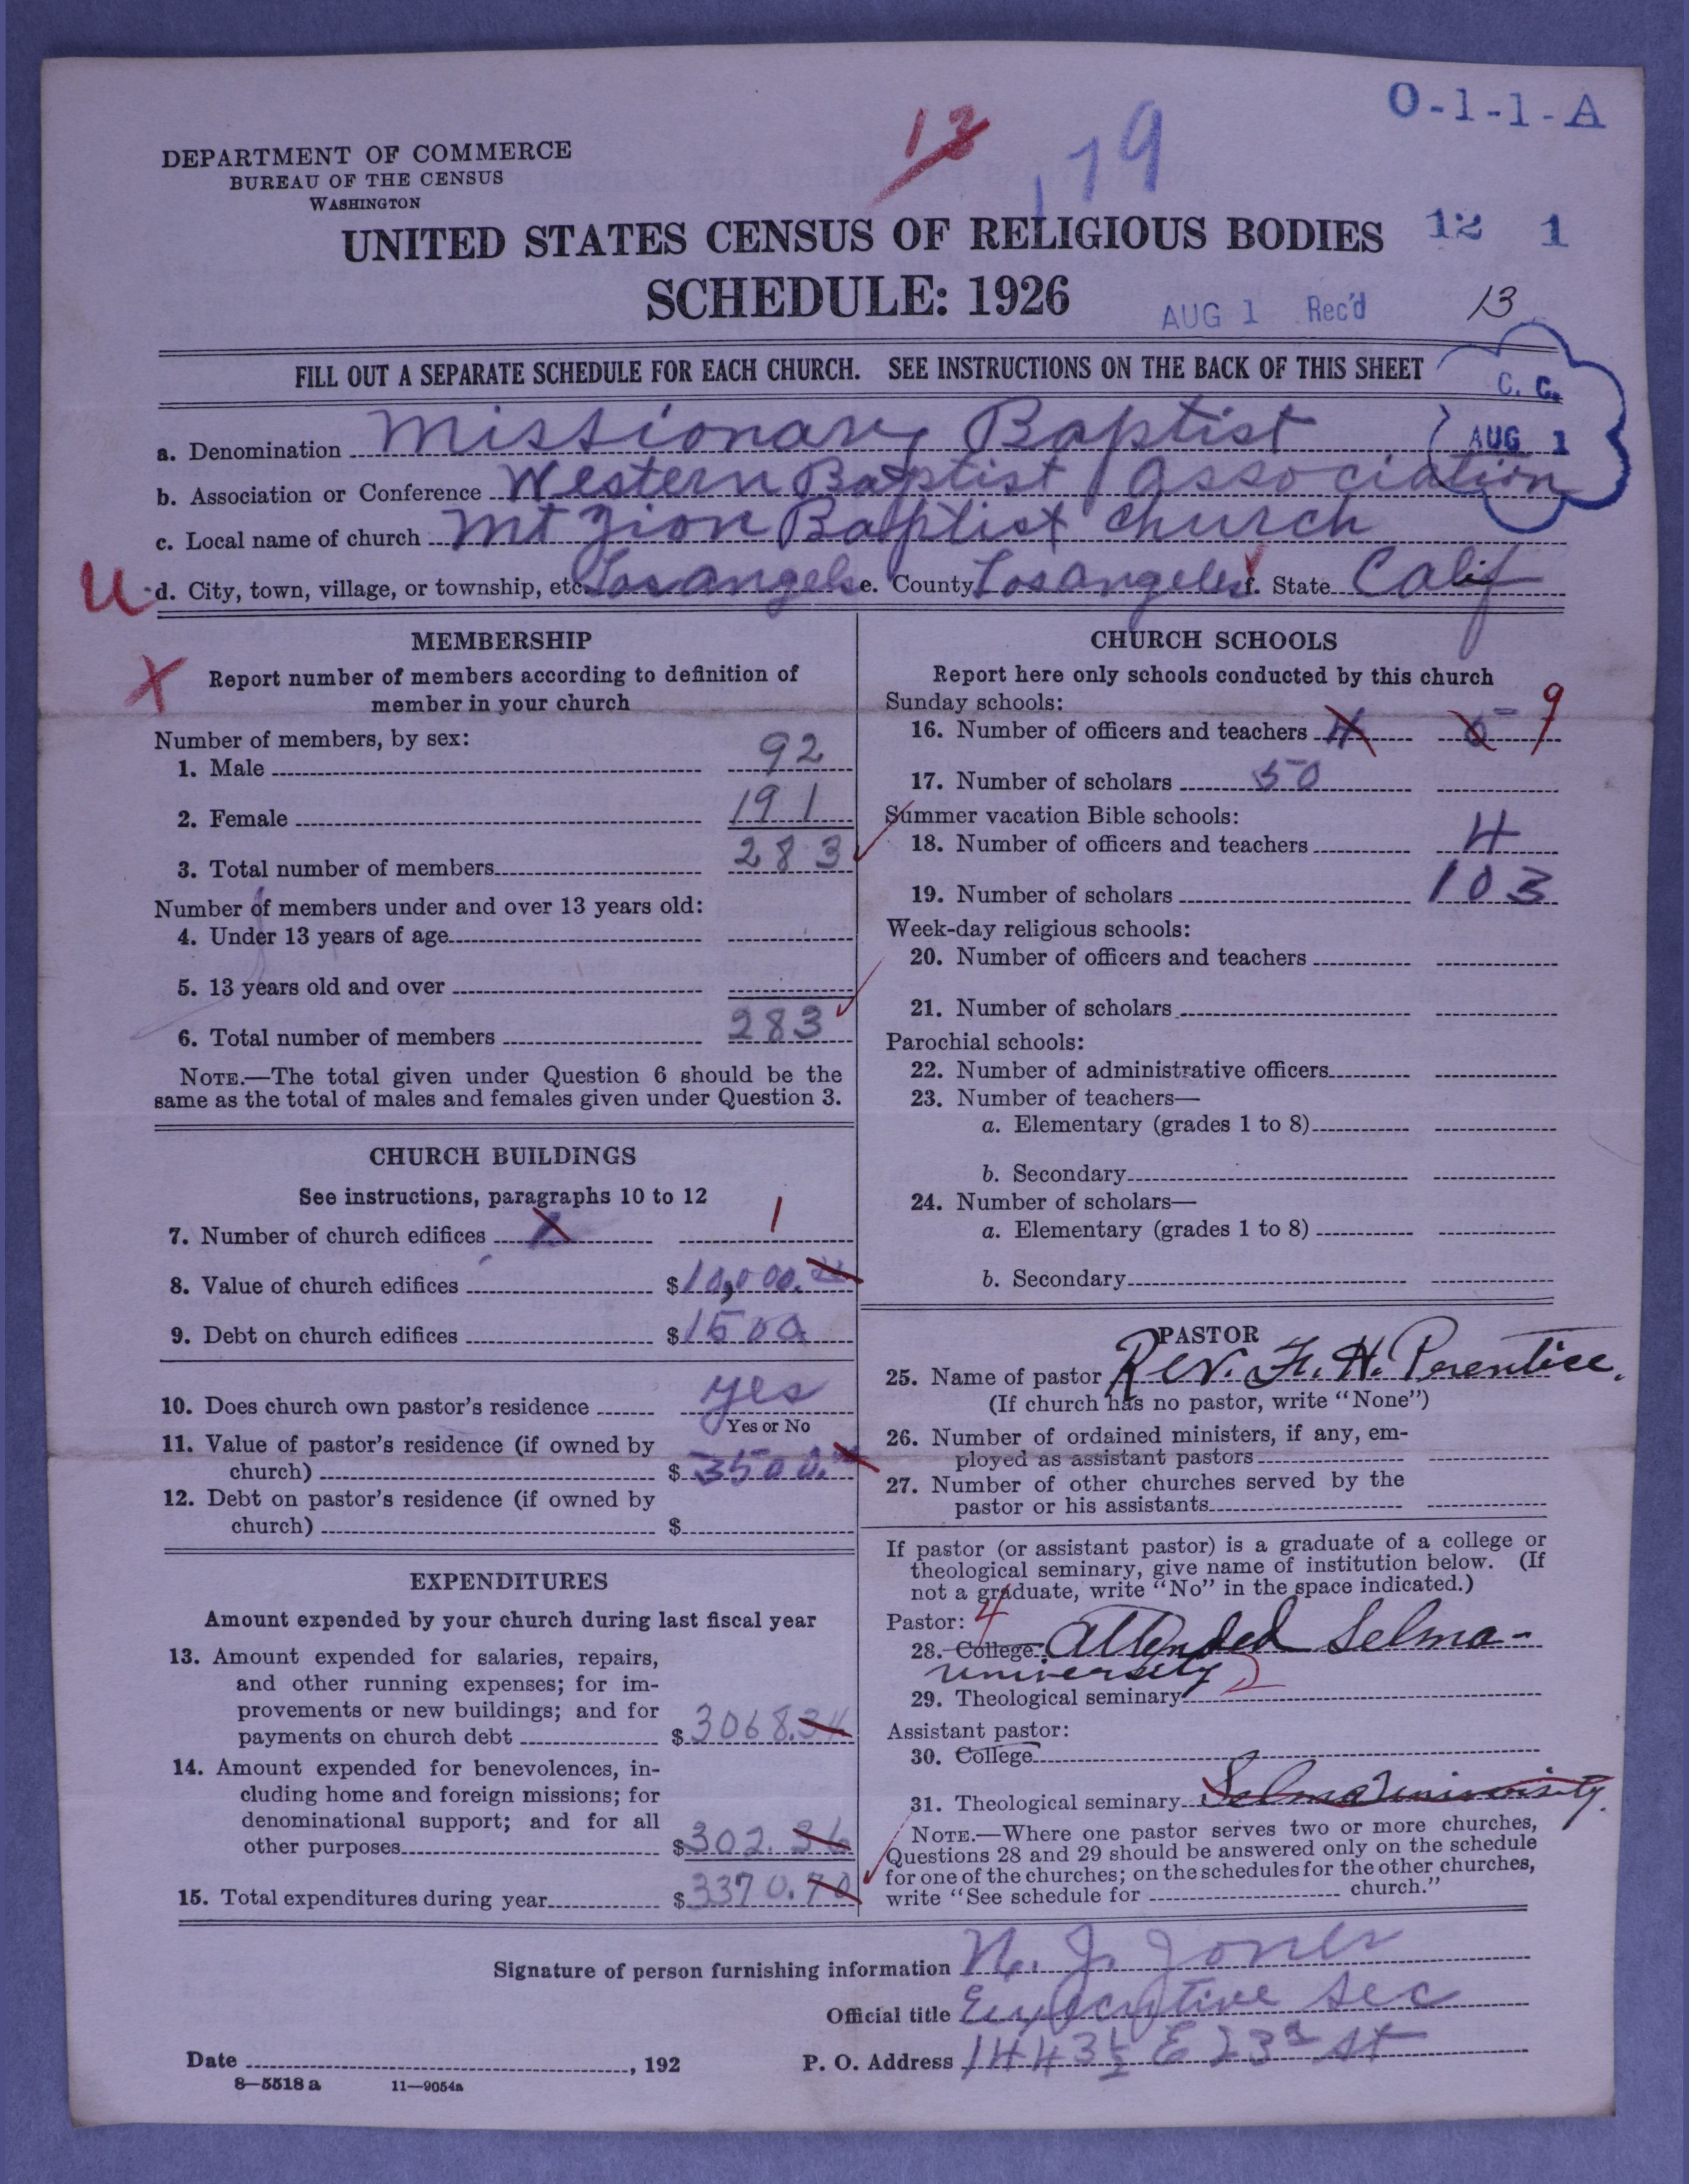 O-1-1-A
13
179
DEPARTMENT OF COMMERCE
BUREAU OF THE CENSUS
WASHINGTON
UNITED STATES CENSUS OF RELIGIOUS BODIES
12 1
SCHEDULE: 1926
AUG 1 Rec'd
13
FILL OUT A SEPARATE SCHEDULE FOR EACH CHURCH. SEE INSTRUCTIONS ON THE BACK OF THIS SHEET
C. C.
AUG 1
a. Denomination Missionary Baptist
b. Association or Conference Western Baptist Association
c. Local name of church Mt Zion Baptist Church
U d. City, town, village, or township, etc. Los angels e. County Los angeles f. State Calif
MEMBERSHIP
X
Report number of members according to definition of
member in your church
Number of members, by sex:
1. Male 92
2. Female 191
3. Total number of members 283
Number of members under and over 13 years old:
4. Under 13 years of age
5. 13 years old and over
6. Total number of members 283
NOTE.—The total given under Question 6 should be the
same as the total of males and females given under Question 3.
CHURCH BUILDINGS
See instructions, paragraphs 10 to 12
7. Number of church edifices 1 1
8. Value of church edifices $10,000.
9. Debt on church edifices $1500
10. Does church own pastor's residence yes
Yes or No
11. Value of pastor's residence (if owned by
church) $3500.
12. Debt on pastor's residence (if owned by
church) $
EXPENDITURES
Amount expended by your church during last fiscal year
13. Amount expended for salaries, repairs,
and other running expenses; for im-
provements or new buildings; and for
payments on church debt $3068.34
14. Amount expended for benevolences, in-
cluding home and foreign missions; for
denominational support; and for all
other purposes $302.36
15. Total expenditures during year $3370.70
CHURCH SCHOOLS
Report here only schools conducted by this church
Sunday schools:
16. Number of officers and teachers 4 5 9
17. Number of scholars 50
Summer vacation Bible schools:
18. Number of officers and teachers 4
19. Number of scholars 103
Week-day religious schools:
20. Number of officers and teachers
21. Number of scholars
Parochial schools:
22. Number of administrative officers
23. Number of teachers—
a. Elementary (grades 1 to 8)
b. Secondary
24. Number of scholars—
a. Elementary (grades 1 to 8)
b. Secondary
PASTOR
25. Name of pastor Rev. F. H. Prentice.
(If church has no pastor, write "None")
26. Number of ordained ministers, if any, em-
ployed as assistant pastors
27. Number of other churches served by the
pastor or his assistants
If pastor (or assistant pastor) is a graduate of a college or
theological seminary, give name of institution below. (If
not a graduate, write "No" in the space indicated.)
Pastor: 4
28. College Attended Selma-
university 2
29. Theological seminary
Assistant pastor:
30. College
31. Theological seminary Selma University.
NOTE.—Where one pastor serves two or more churches,
Questions 28 and 29 should be answered only on the schedule
for one of the churches; on the schedules for the other churches,
write "See schedule for church."
Signature of person furnishing information N. J. Jones
Official title Executive Sec
Date , 192 P. O. Address 1443½ E 23rd St
8—5518 a 11—9054a